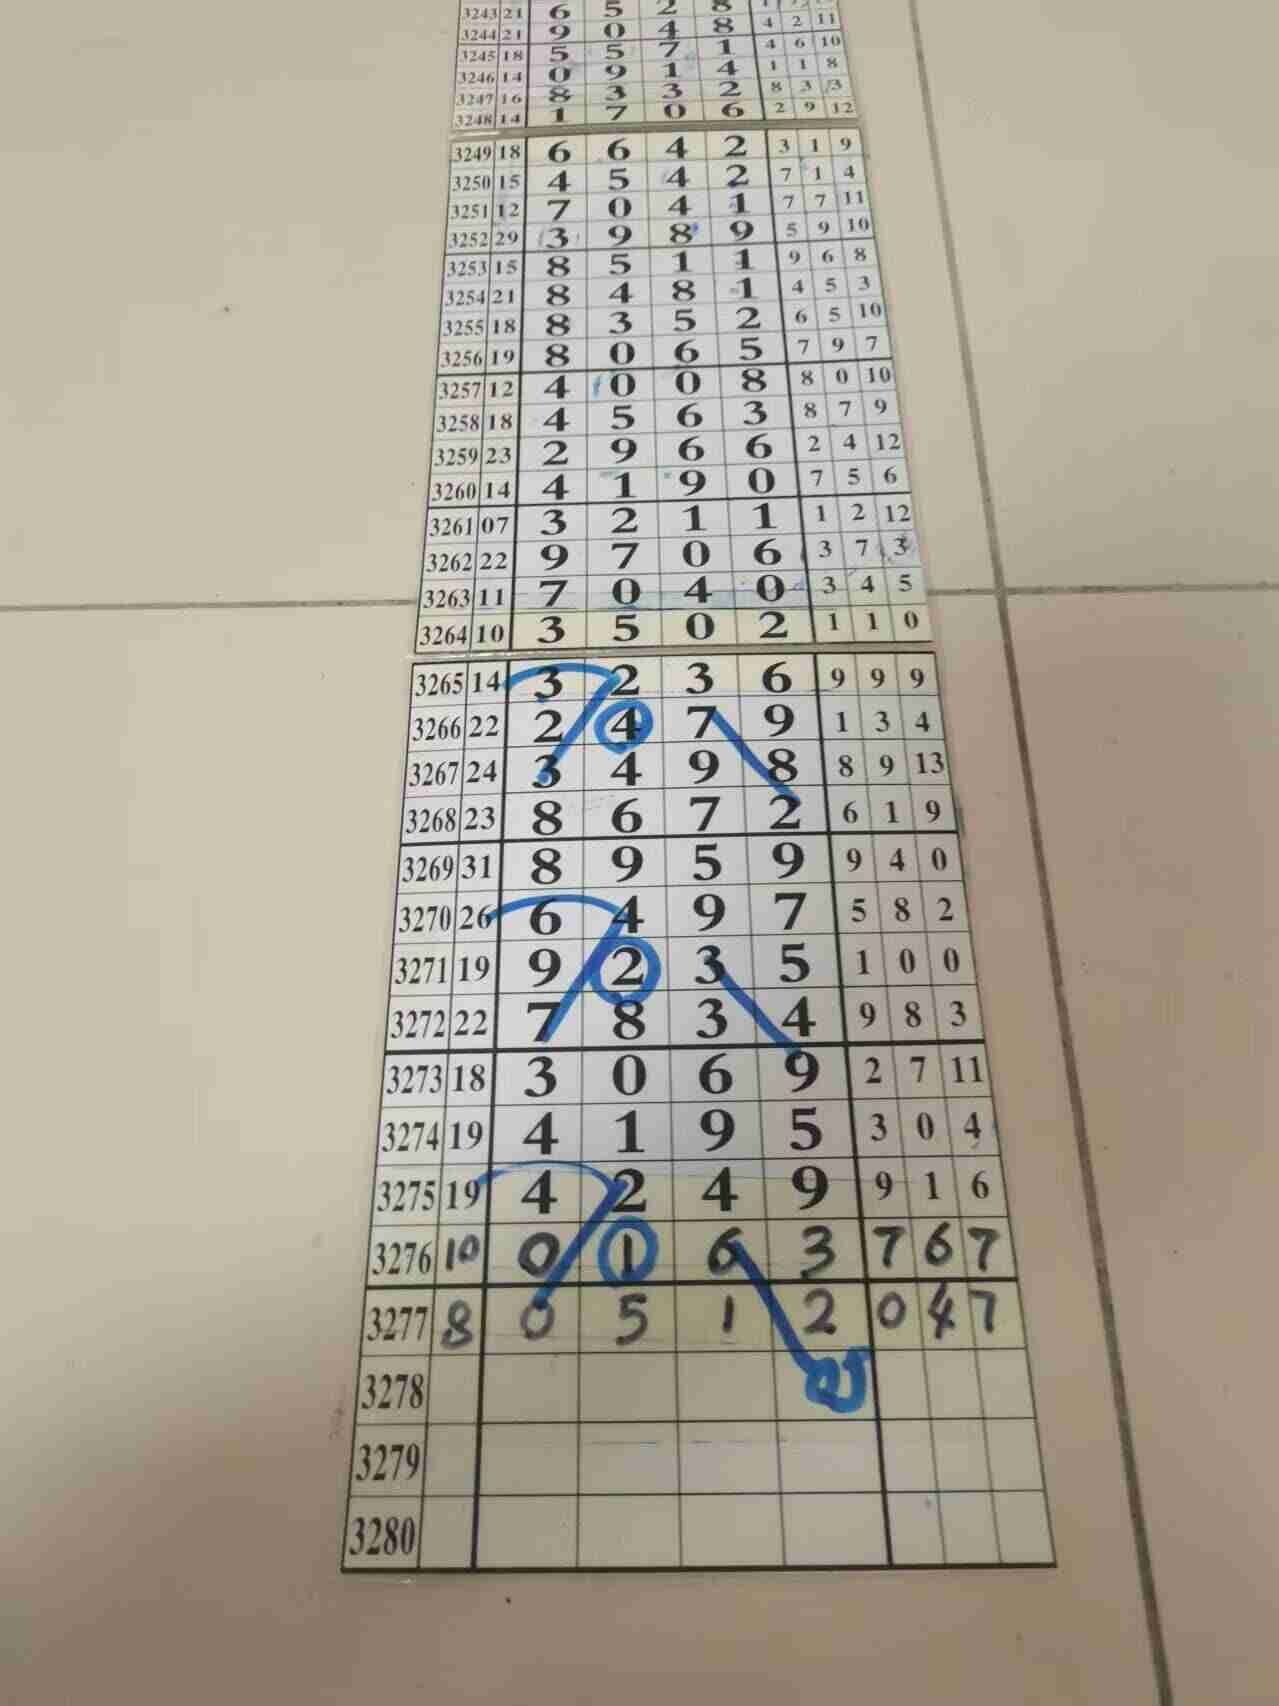 3243 21 6 5 2 8
3244 21 9 0 4 8 4 2 11
3245 18 5 5 7 1 4 6 10
3246 14 0 9 1 4 1 1 8
3247 16 8 3 3 2 8 3 3
3248 14 1 7 0 6 2 9 12
3249 18 6 6 4 2 3 1 9
3250 15 4 5 4 2 7 1 4
3251 12 7 0 4 1 7 7 11
3252 29 3 9 8 9 5 9 10
3253 15 8 5 1 1 9 6 8
3254 21 8 4 8 1 4 5 3
3255 18 8 3 5 2 6 5 10
3256 19 8 0 6 5 7 9 7
3257 12 4 0 0 8 8 0 10
3258 18 4 5 6 3 8 7 9
3259 23 2 9 6 6 2 4 12
3260 14 4 1 9 0 7 5 6
3261 07 3 2 1 1 1 2 12
3262 22 9 7 0 6 3 7 3
3263 11 7 0 4 0 3 4 5
3264 10 3 5 0 2 1 1 0
3265 14 3 2 3 6 9 9 9
3266 22 2 4 7 9 1 3 4
3267 24 3 4 9 8 8 9 13
3268 23 8 6 7 2 6 1 9
3269 31 8 9 5 9 9 4 0
3270 26 6 4 9 7 5 8 2
3271 19 9 2 3 5 1 0 0
3272 22 7 8 3 4 9 8 3
3273 18 3 0 6 9 2 7 11
3274 19 4 1 9 5 3 0 4
3275 19 4 2 4 9 9 1 6
3276 10 0 1 6 3 7 6 7
3277 8 0 5 1 2 0 4 7
3278
3279
3280